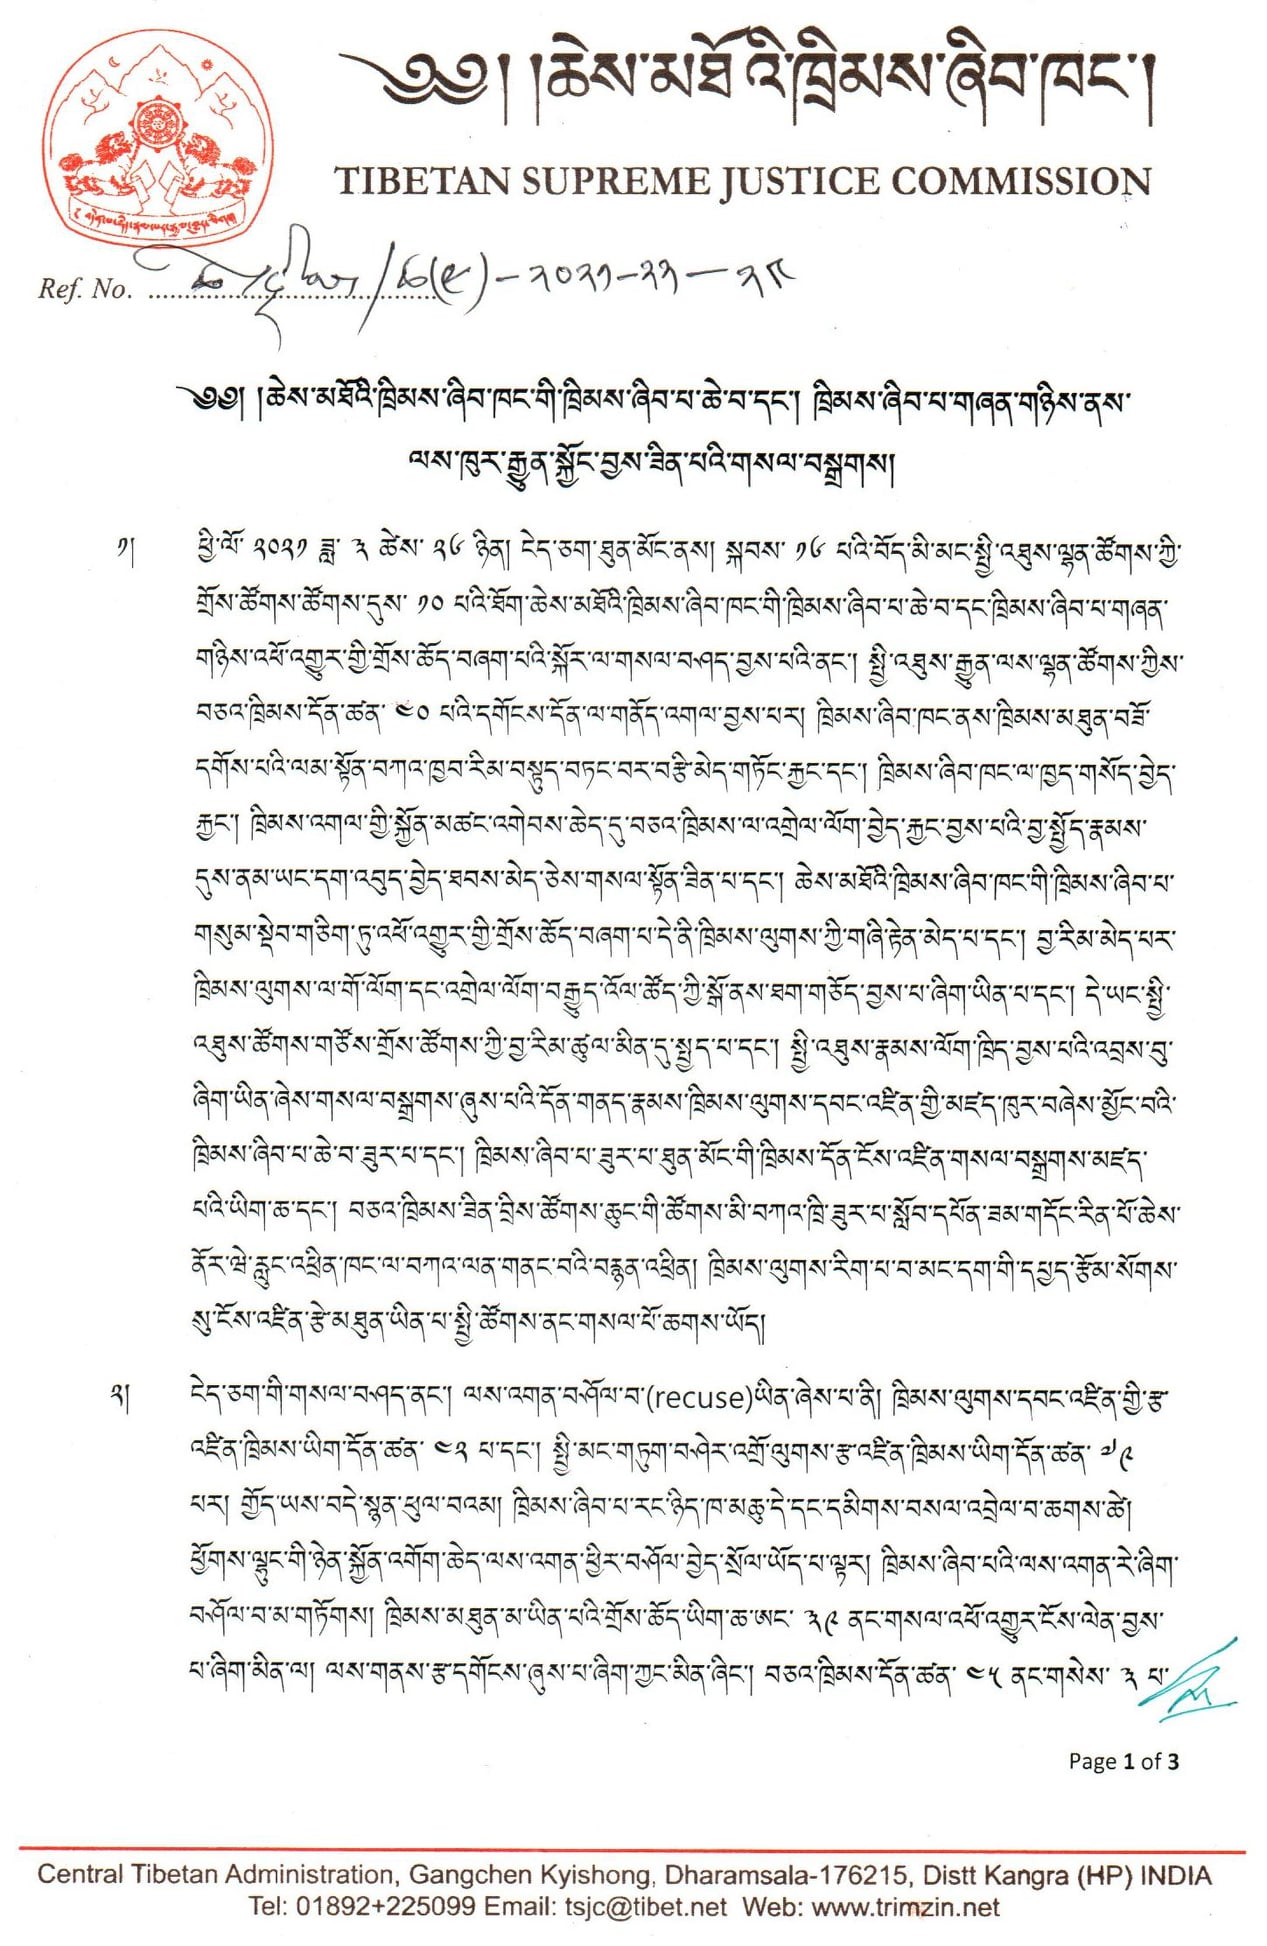 ༄༅། །ཆེས་མཐོའི་ཁྲིམས་ཞིབ་ཁང་།
TIBETAN SUPREME JUSTICE COMMISSION
Ref. No. /ཆ(༩)-༢༠༢༡-༢༢-༢༩
༄༅། །ཆེས་མཐོའི་ཁྲིམས་ཞིབ་ཁང་གི་ཁྲིམས་ཞིབ་པ་ཆེ་བ་དང་། ཁྲིམས་ཞིབ་པ་གཞན་གཉིས་ནས་
ལས་ཁུར་རྒྱུན་སྐྱོང་བྱས་ཟིན་པའི་གསལ་བསྒྲགས།
༡། ཕྱི་ལོ་ ༢༠༢༡ ཟླ་ ༣ ཚེས་ ༢༦ ཉིན། ངེད་ཅག་ཐུན་མོང་ནས། སྐབས་ ༡༦ པའི་བོད་མི་མང་སྤྱི་འཐུས་ལྷན་ཚོགས་ཀྱི་
གྲོས་ཚོགས་ཚོགས་དུས་ ༡༠ པའི་ཐོག་ཆེས་མཐོའི་ཁྲིམས་ཞིབ་ཁང་གི་ཁྲིམས་ཞིབ་པ་ཆེ་བ་དང་ཁྲིམས་ཞིབ་པ་གཞན་
གཉིས་འཕོ་འགྱུར་གྱི་གྲོས་ཆོད་བཞག་པའི་སྐོར་ལ་གསལ་བཤད་བྱས་པའི་ནང་། སྤྱི་འཐུས་རྒྱུན་ལས་ལྷན་ཚོགས་ཀྱིས་
བཅའ་ཁྲིམས་དོན་ཚན་ ༤༠ པའི་དགོངས་དོན་ལ་གནོད་འགལ་བྱས་པར། ཁྲིམས་ཞིབ་ཁང་ནས་ཁྲིམས་མཐུན་བཟོ་
དགོས་པའི་ལམ་སྟོན་བཀའ་ཁྱབ་རིམ་བསྟུད་བཏང་བར་བརྩི་མེད་གཏོང་རྐྱང་དང་། ཁྲིམས་ཞིབ་ཁང་ལ་ཁྱད་གསོད་བྱེད་
རྐྱང་། ཁྲིམས་འགལ་གྱི་སྐྱོན་མཚང་འགེབས་ཆེད་དུ་བཅའ་ཁྲིམས་ལ་འགྲེལ་ལོག་བྱེད་རྐྱང་བྱས་པའི་བྱ་སྤྱོད་རྣམས་
དུས་ནམ་ཡང་དག་འབུད་བྱེད་ཐབས་མེད་ཅེས་གསལ་སྟོན་ཟིན་པ་དང་། ཆེས་མཐོའི་ཁྲིམས་ཞིབ་ཁང་གི་ཁྲིམས་ཞིབ་པ་
གསུམ་སྡེབ་གཅིག་ཏུ་འཕོ་འགྱུར་གྱི་གྲོས་ཆོད་བཞག་པ་དེ་ནི་ཁྲིམས་ལུགས་ཀྱི་གཞི་རྟེན་མེད་པ་དང་། བྱ་རིམ་མེད་པར་
ཁྲིམས་ལུགས་ལ་གོ་ལོག་དང་འགྲེལ་ལོག་བརྒྱུད་འོལ་ཚོད་ཀྱི་སྒོ་ནས་ཐག་གཅོད་བྱས་པ་ཞིག་ཡིན་པ་དང་། དེ་ཡང་སྤྱི་
འཐུས་ཚོགས་གཙོས་གྲོས་ཚོགས་ཀྱི་བྱ་རིམ་ཚུལ་མིན་དུ་སྤྱད་པ་དང་། སྤྱི་འཐུས་རྣམས་ལོག་ཁྲིད་བྱས་པའི་འབྲས་བུ་
ཞིག་ཡིན་ཞེས་གསལ་བསྒྲགས་ཞུས་པའི་དོན་གནད་རྣམས་ཁྲིམས་ལུགས་དབང་འཛིན་གྱི་མཛད་ཁུར་བཞེས་མྱོང་བའི་
ཁྲིམས་ཞིབ་པ་ཆེ་བ་ཟུར་པ་དང་། ཁྲིམས་ཞིབ་པ་ཟུར་པ་ཐུན་མོང་གི་ཁྲིམས་དོན་ངོས་འཛིན་གསལ་བསྒྲགས་མཛད་
པའི་ཡིག་ཆ་དང་། བཅའ་ཁྲིམས་ཟིན་བྲིས་ཚོགས་ཆུང་གི་ཚོགས་མི་བཀའ་ཁྲི་ཟུར་པ་སློབ་དཔོན་ཟམ་གདོང་རིན་པོ་ཆེས་
ནོར་ཝེ་རླུང་འཕྲིན་ཁང་ལ་བཀའ་ལན་གནང་བའི་བརྙན་འཕྲིན། ཁྲིམས་ལུགས་རིག་པ་བ་མང་དག་གི་དཔྱད་རྩོམ་སོགས་
སུ་ངོས་འཛིན་རྩེ་མཐུན་ཡིན་པ་སྤྱི་ཚོགས་ནང་གསལ་པོ་ཆགས་ཡོད།
༢། ངེད་ཅག་གི་གསལ་བཤད་ནང་། ལས་འགན་བཤོལ་བ་(recuse)ཡིན་ཞེས་པ་ནི། ཁྲིམས་ལུགས་དབང་འཛིན་གྱི་རྩ་
འཛིན་ཁྲིམས་ཡིག་དོན་ཚན་ ༤༢ པ་དང་། སྤྱི་མང་གཏུག་བཤེར་འགྲོ་ལུགས་རྩ་འཛིན་ཁྲིམས་ཡིག་དོན་ཚན་ ༧༩
པར། གྱོད་ཡས་བདེ་སྙན་ཕུལ་བའམ། ཁྲིམས་ཞིབ་པ་རང་ཉིད་ཁ་མཆུ་དེ་དང་དམིགས་བསལ་འབྲེལ་བ་ཆགས་ཚེ།
ཕྱོགས་ལྷུང་གི་ཉེན་སྐྱོན་འགོག་ཆེད་ལས་འགན་ཕྱིར་བཤོལ་བྱེད་སྲོལ་ཡོད་པ་ལྟར། ཁྲིམས་ཞིབ་པའི་ལས་འགན་རེ་ཞིག་
བཤོལ་བ་མ་གཏོགས། ཁྲིམས་མཐུན་མ་ཡིན་པའི་གྲོས་ཆོད་ཡིག་ཆ་ཨང་ ༣༩ ནང་གསལ་འཕོ་འགྱུར་ངོས་ལེན་བྱས་
པ་ཞིག་མིན་ལ། ལས་གནས་རྩ་དགོངས་ཞུས་པ་ཞིག་ཀྱང་མིན་ཞིང་། བཅའ་ཁྲིམས་དོན་ཚན་ ༤༥ ནང་གསེས་ ༣ པ་
Page 1 of 3
Central Tibetan Administration, Gangchen Kyishong, Dharamsala-176215, Distt Kangra (HP) INDIA
Tel: 01892+225099 Email: tsjc@tibet.net Web: www.trimzin.net